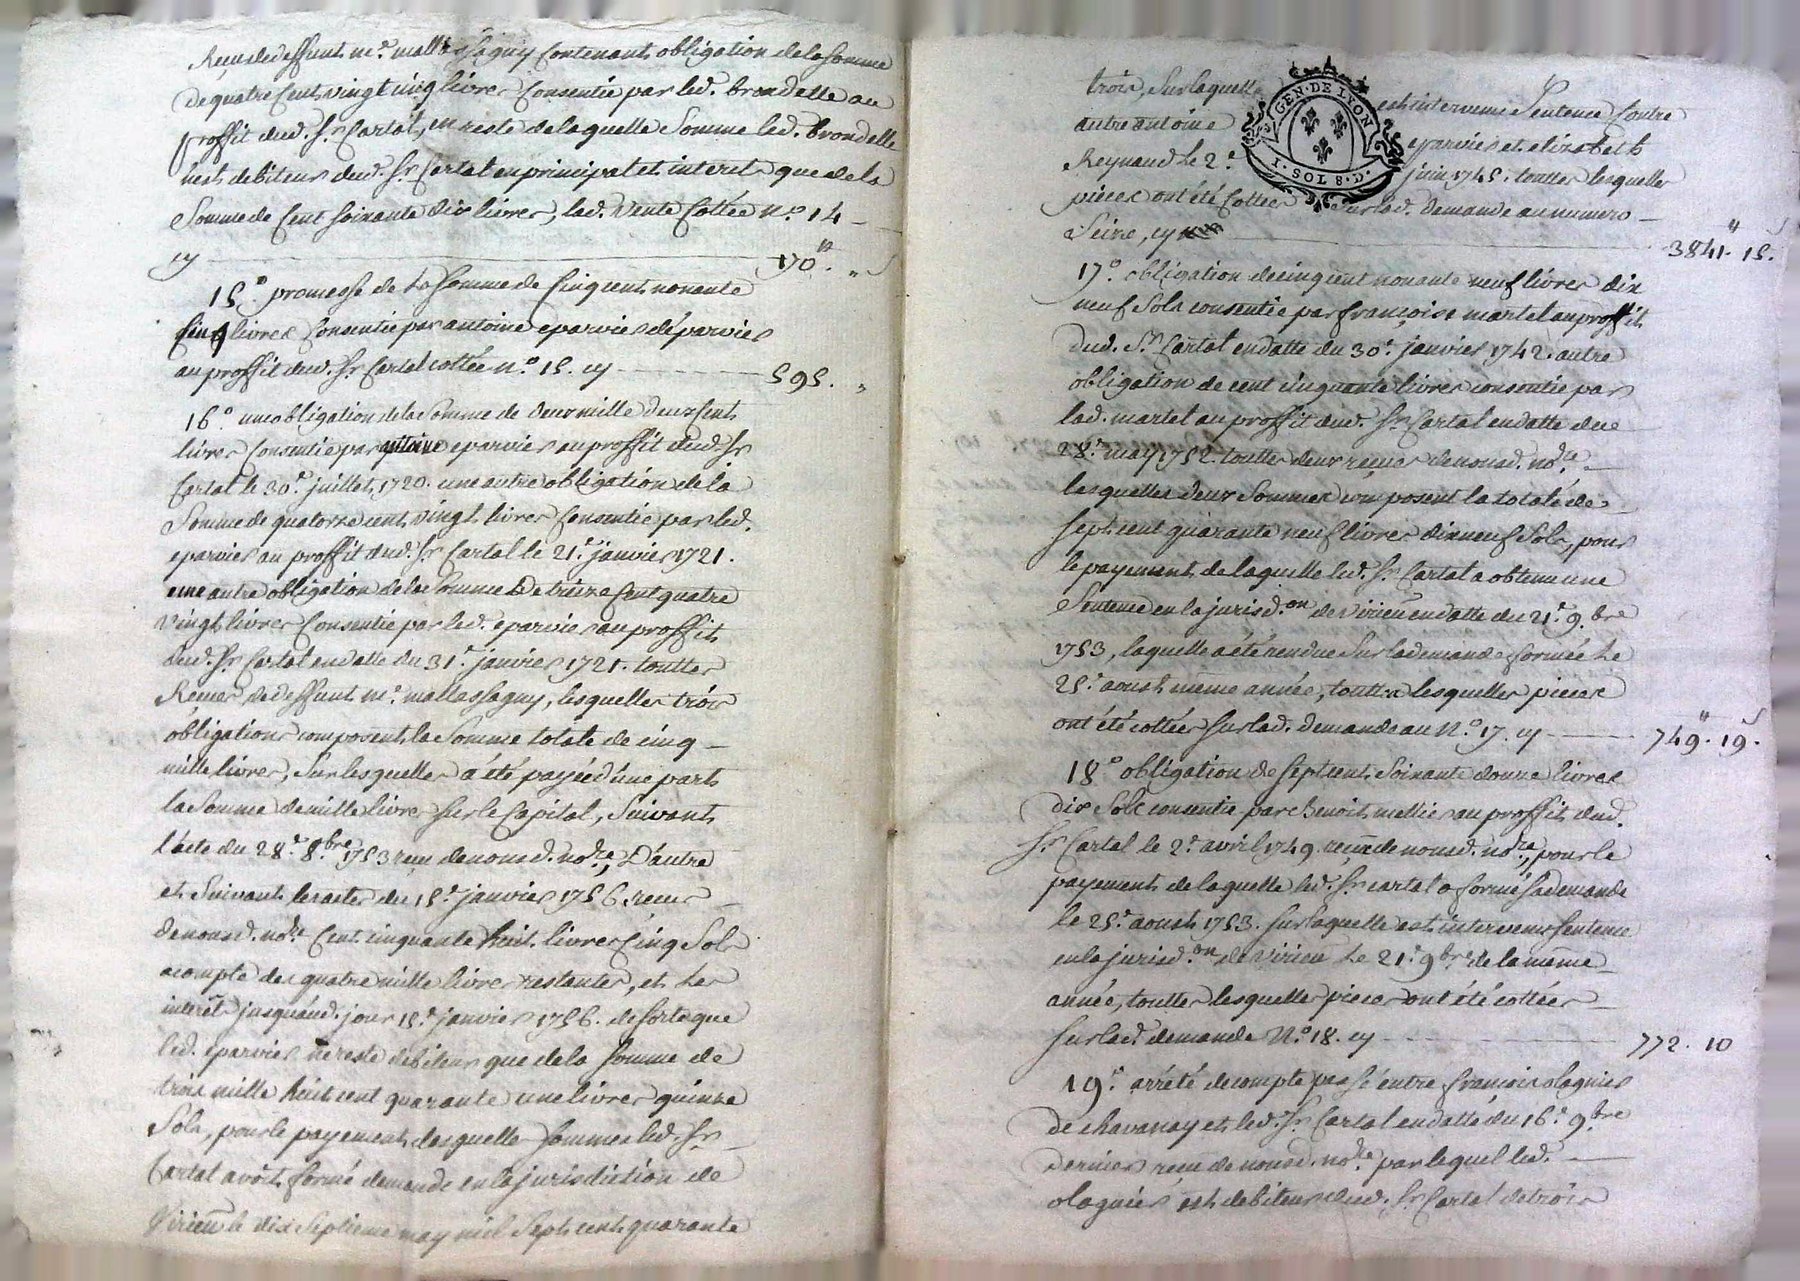 Recue dedeffunt me. mallassagny Contenant obligation de la somme
de quatre Cent vingt cinq livres Consentie par led. brondelle au
proffit dud. Sr. Cartal, en reste de laquelle Somme led. brondelle
nest debiteur dud. Sr. Cartal en principal et interets que de la
Somme de Cent soixante dix livres, lad. vente Cottée No. 14
cy 170.tt „ s
15.° promesse de la somme de Cinq cent nonante
Cinq livres Consentie par antoine eparvier d'éparvier
au proffit dud. Sr. Cartal cottée n.° 15. cy 595. „
16.° une obligation de la Somme de deux mille deux Cent
livres Consentie par antoine eparvier au proffit dud. Sr
Cartal le 30.e juillet 1720. une autre obligation de la
Somme de quatorze cent vingt livres Consentie par led.
eparvier au proffit dud. Sr. Cartal le 21.e janvier 1721.
une autre obligation de la Somme De treize Cent quatre
vingt livres Consentie par led. eparvier au proffit
dud. Sr. Cartal en datte du 31.e janvier 1721. touttes
Recues dedeffunt me. mallassagny, lesquelles trois
obligations composent la Somme totale de cinq
mille livres, Sur lesquelles a été payé d'une part
la Somme de mille livres Sur le Capital, Suivant
l'acte du 28.e 8.bre 1753 reçu de nousd. no.re, D'autre
et Suivant les actes du 15.e janvier 1756. recus
de nousd. no.re Cent cinquante huit livres Cinq Sols
acompte des quatre mille livres restantes, et les
interêt jusqu'aud. jour 15.e janvier 1756. de sorte que
led. eparvier ne reste debiteur que de la somme de
trois mille huit cent quarante une livres quinze
Sols, pour le payement desquelles Sommes led. Sr
Cartal avoit formé demande en la jurisdiction de
Virieu le dix Septieme may mil Sept cent quarante
trois, Sur laquelle est intervenue Sentence Contre
autre antoine eparvier et elizabeth
Reynaud le 2.e juin 1745. touttes lesquelles
pieces ont été Cottées Sur lad. demande au numero
Seize, cy 3841.tt 15.s
GEN. DE LYON
1. SOL 8. D.
17.° obligation de cinq cent nonante neuf livres dix
neuf Sols consentie par françoise martel au proffit
Dud. Sr. Cartal en datte du 30.e janvier 1742. autre
obligation de cent cinquante livres consentie par
lad. martel au proffit dud. Sr. Cartal en datte du
28.e may 1752. touttes deux reçues de nousd. no.re
lesquelles deux Sommes composent la totale de
Sept cent quarante neuf livres dixneuf Sols, pour
le payement de laquelle led. Sr. Cartal a obtenu une
Sentence en la jurisd.on de Virieu en datte du 21.e 9.bre
1753, laquelle a été rendue Sur la demande formée le
25.e aoust même année, touttes lesquelles pieces
ont été cottées Sur lad. demande au N.° 17. cy 749.tt 19.s
18.° obligation de Sept cent Soixante douze livres
dix Sols consentie par Benoit mellier au proffit dud.
Sr. Cartal le 2.e avril 1749. reçüe de nousd. no.re, pour le
payement de laquelle led. Sr. cartal a formé sa demande
le 25.e aoust 1753. Sur laquelle est intervenu Sentence
en la jurisd.on de Virieu le 21.e 9bre de la même
année, touttes lesquelles pieces ont été cottées
Sur lad. demande N.° 18. cy 772. 10
19.° arrété de compte passé entre francois olagnier
de chavanay et led. Sr. Cartal en datte du 16.e 9.bre
dernier reçu de nousd. no.re par lequel led.
olagnier est debiteur dud. Sr. Cartal de trois